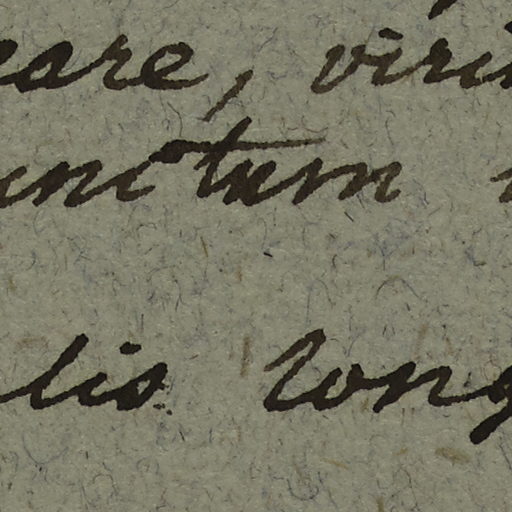 eare, viri
unctum
lis long